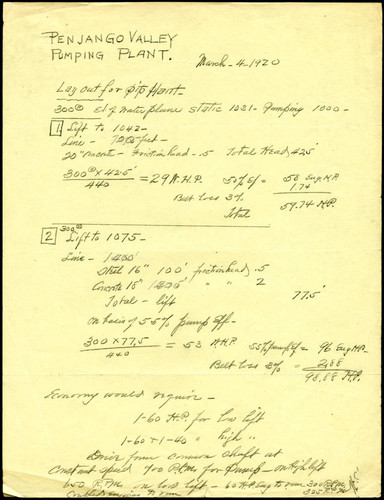 PENJANGO VALLEY
PUMPING PLANT.
March - 4 - 1920
Lay out for
300 El of Water plane Static 1031 - Pumping 1000 -
1 Lift to 1042 -
Line - feet -
20" - Friction head - .5 Total Head 42.5'
300 X 42.5' / 440 = 29 W.H.P. 50% Ef = 58 Eng. H.P.
Belt Loss 3% 1.74
Total 59.74 H.P.
300
2 Lift to 1075 -
Line -
Steel 16" 100' friction head .5
Concrete " " 2
Total - lift 77.5'
On basis of 55% pump eff -
300 X 77.5 / 440 = 53 W.H.P. 55% pump Ef = 96 Eng H.P.
Belt Loss 3% = 2.88
98.88 H.P.
Economy would require -
1 - 60 H.P. for low lift
1 - 60 + 1 - 40 " high "
Drive from common shaft at
Constant speed 700 R.P.M. for Pump - on high lift
650 R.P.M. on low lift - 60 H.P. Eng to run 300 R.P.M.